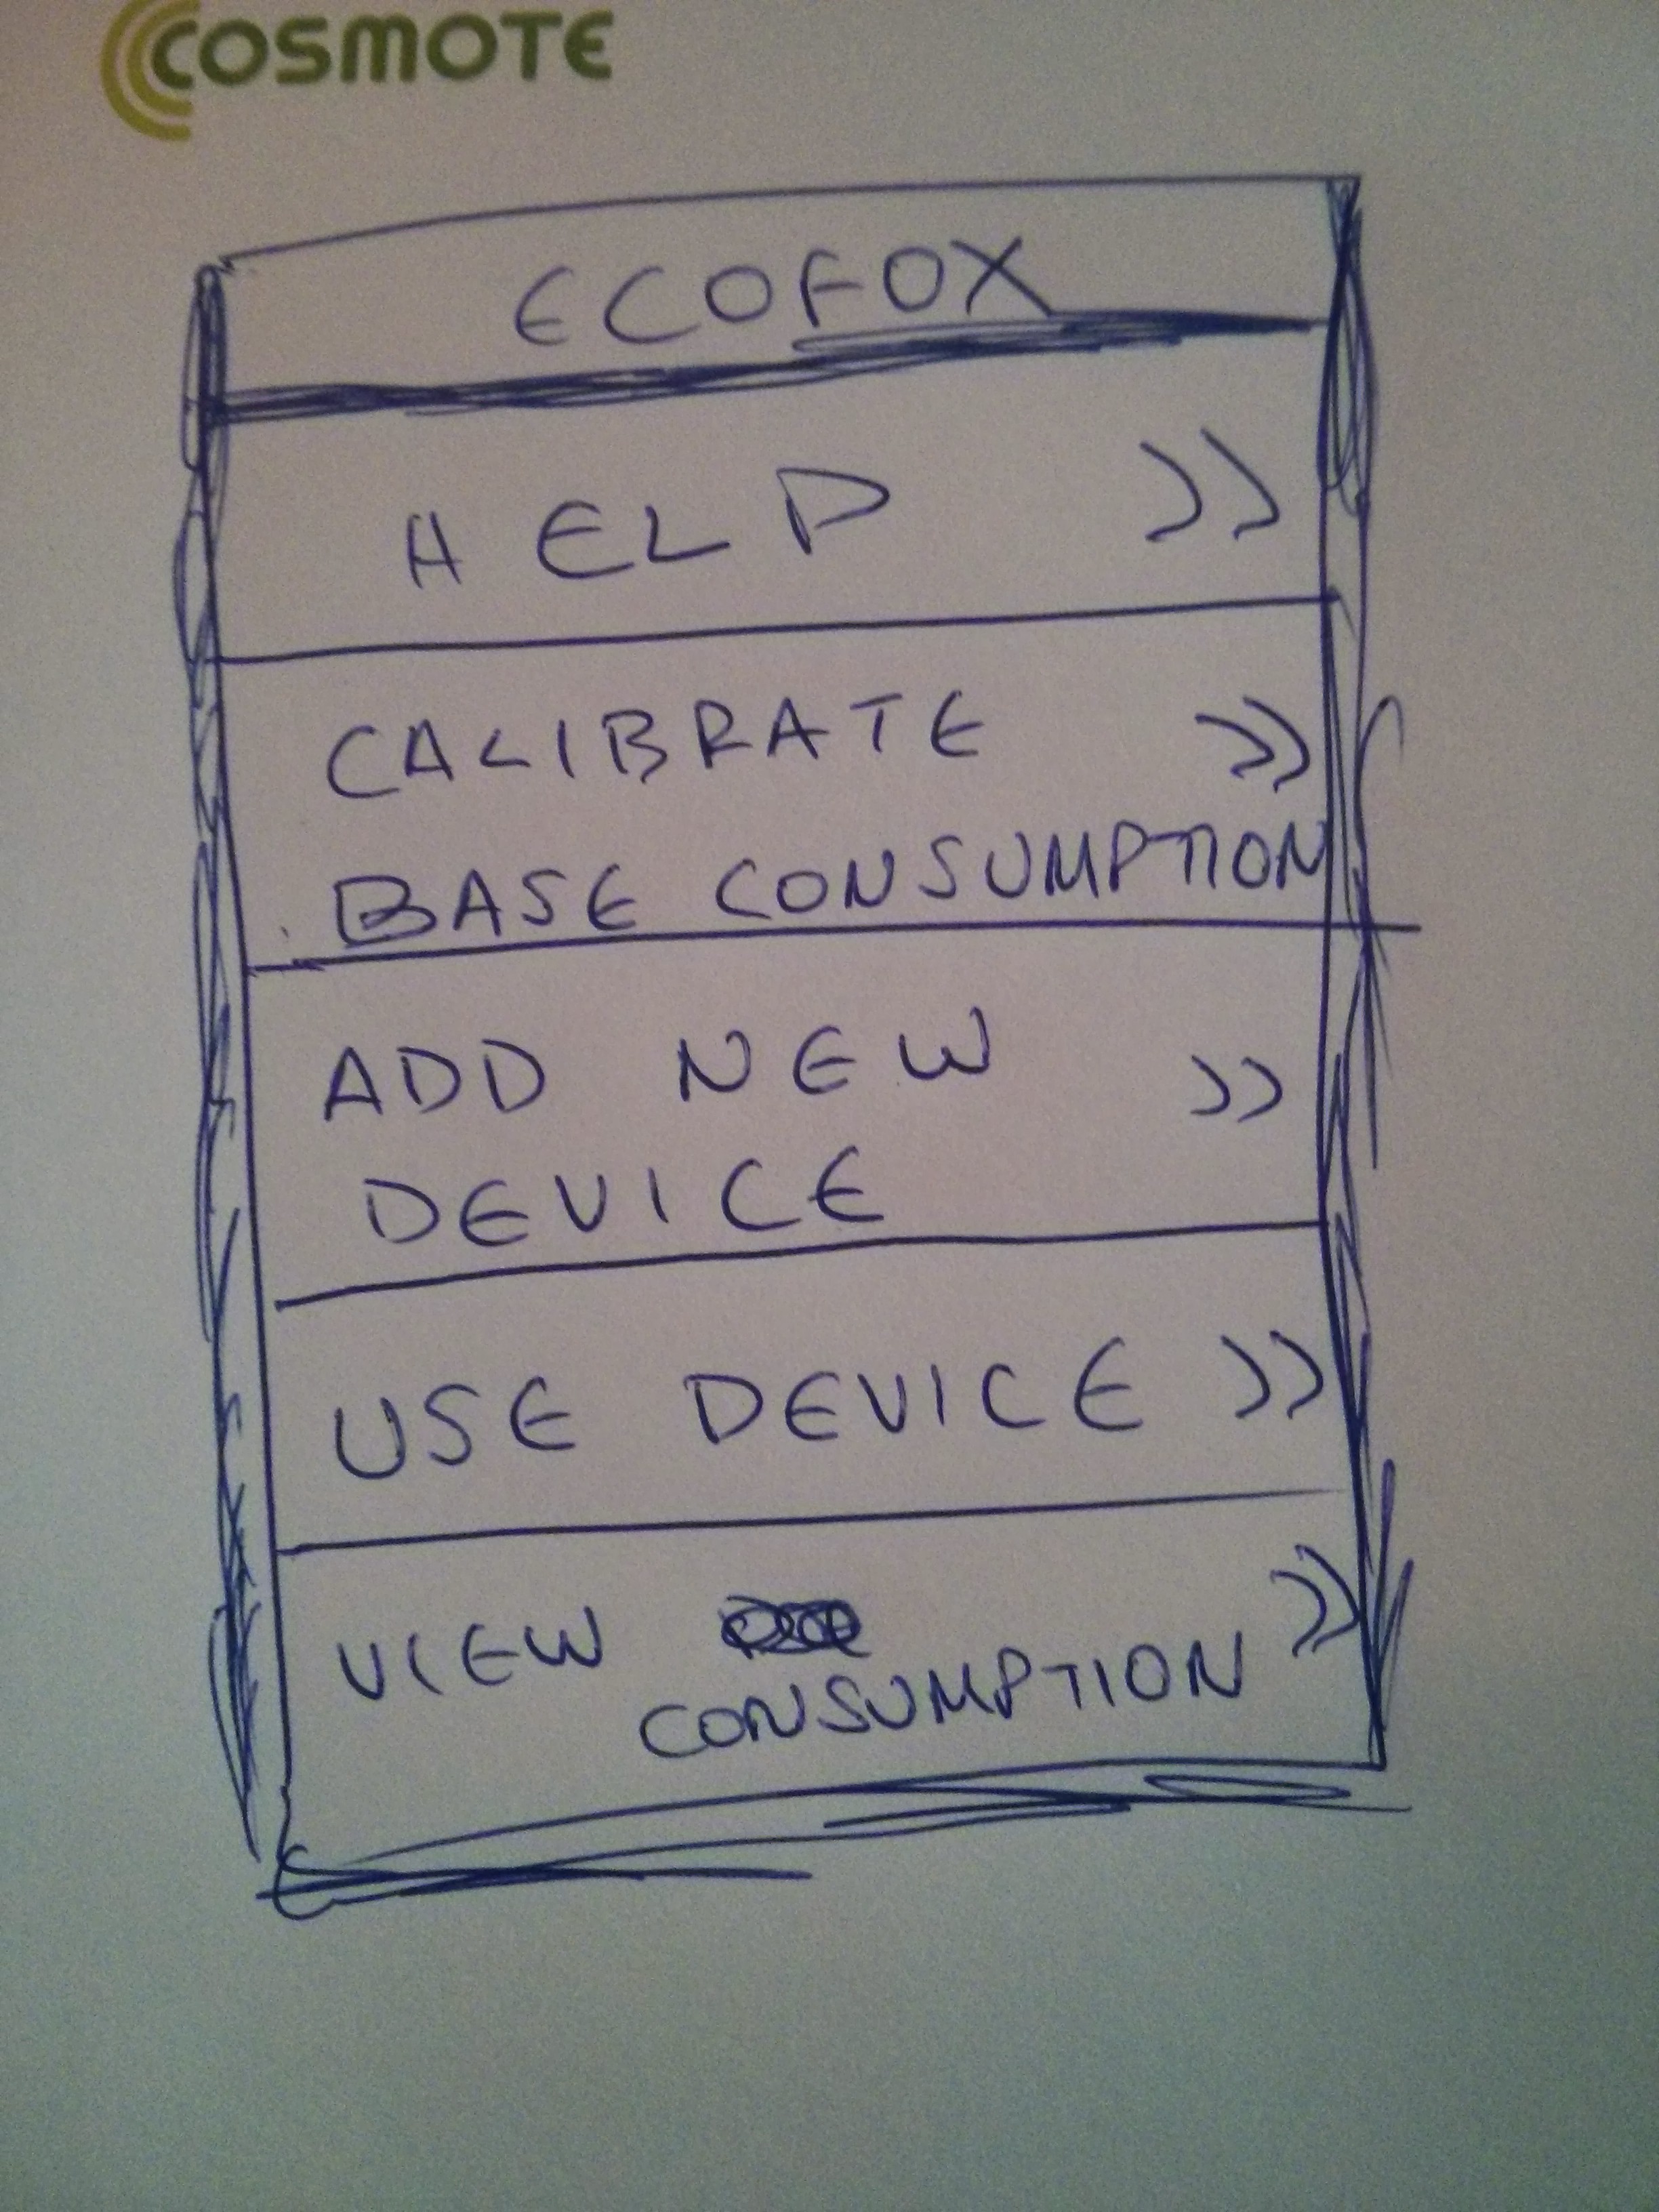 COSMOTE
ECOFOX
HELP >>
CALIBRATE >>
BASE CONSUMPTION
ADD NEW >>
DEVICE
USE DEVICE >>
VIEW >>
CONSUMPTION